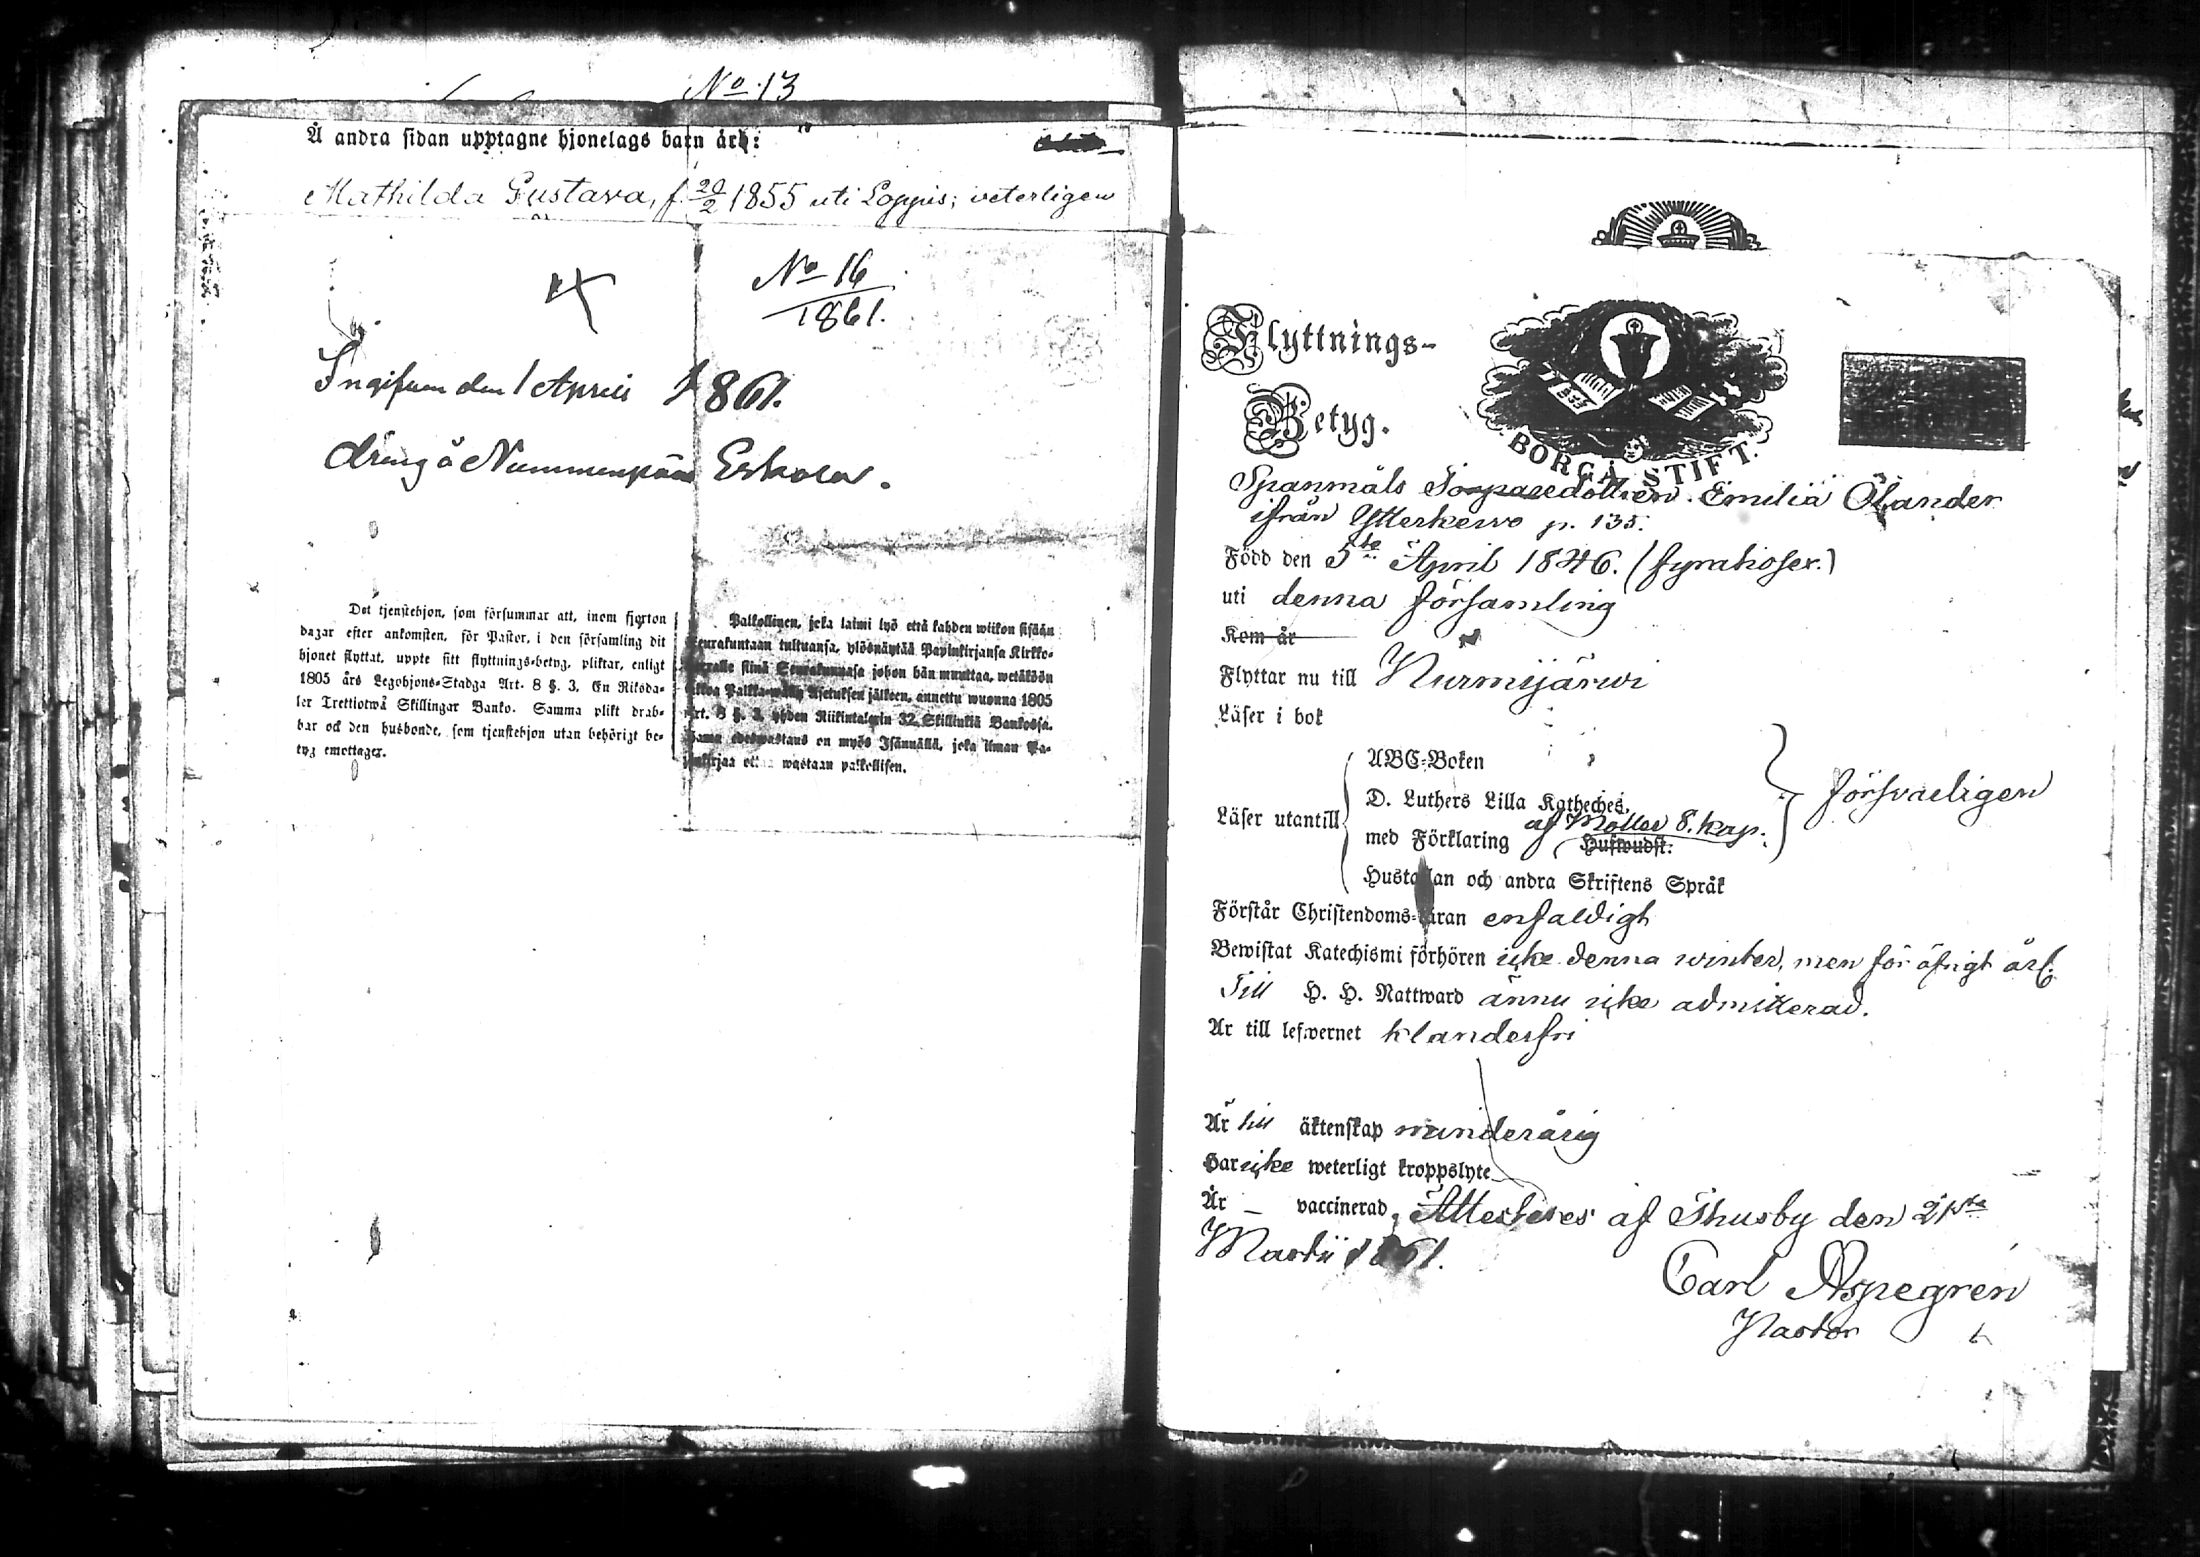 No 13
Å andra sidan upptagne hjonelags barn äro:
Mathilda Gustava, f. 20/2 1855 uti Loppis; veterligen
No 16
1861.
Ingifven den 1 April 1861.
dräng å Nummenpää Eskola.
Det tjenstehjon, som försummar att, inom fjorton
dagar efter ankomsten, för Pastor, i den församling dit
hjonet flyttat, uppte sitt flyttnings-betyg, pliktar, enligt
1805 års Legohjons-Stadga Art. 8 §. 3, En Riksda-
ler Trettiotwå Skillingar Banko. Samma plikt drab-
bar ock den husbonde, som tjenstehjon utan behörigt be-
tyg emottager.
Palkollinen, joka laimi lyö että kahden wiikon sisään
Seurakuntaan tultuansa, ylösnäytää Papinkirjansa Kirkko-
herralle siinä Seurakunnasa johon hän muuttaa, wetäköön
Palkka-wäen Asetuksen jälkeen, annettu wuonna 1805
Art. 8 §. 3, yhden Riikintalerin 32 Skillinkiä Bankossa.
Sama edeswastaus on myös Isännällä, joka ilman Pa-
pinkirjaa ottaa wastaan palkollisen.
Flyttnings-
Betyg.
BORGÅ STIFT.
Spanmåls Torparedottren Emilia Ölander
ifrån Ytterkervo p. 135.
Född den 5te April 1846. (fyratiosex.)
uti denna församling
Kom år
Flyttar nu till Nurmijärwi
Läser i bok
ABC-Boken
D. Luthers Lilla Katheches,
Läser utantill
med Förklaring af Möller 8. kap.
Hufwudst.
försvarligen
Hustaflan och andra Skriftens Språk
Förstår Christendoms-läran enfaldigt
Bewistat Katechismi förhören icke denna winter, men för öfrigt årl.
Till H. H. Nattward ännu icke admitterad.
Är till lefwernet klanderfri
Är till äktenskap minderårig
Har icke weterligt kroppslyte
Är — vaccinerad, Attesteres af Thusby den 21sta
Martii 1861.
Carl Aspegren
Pastor